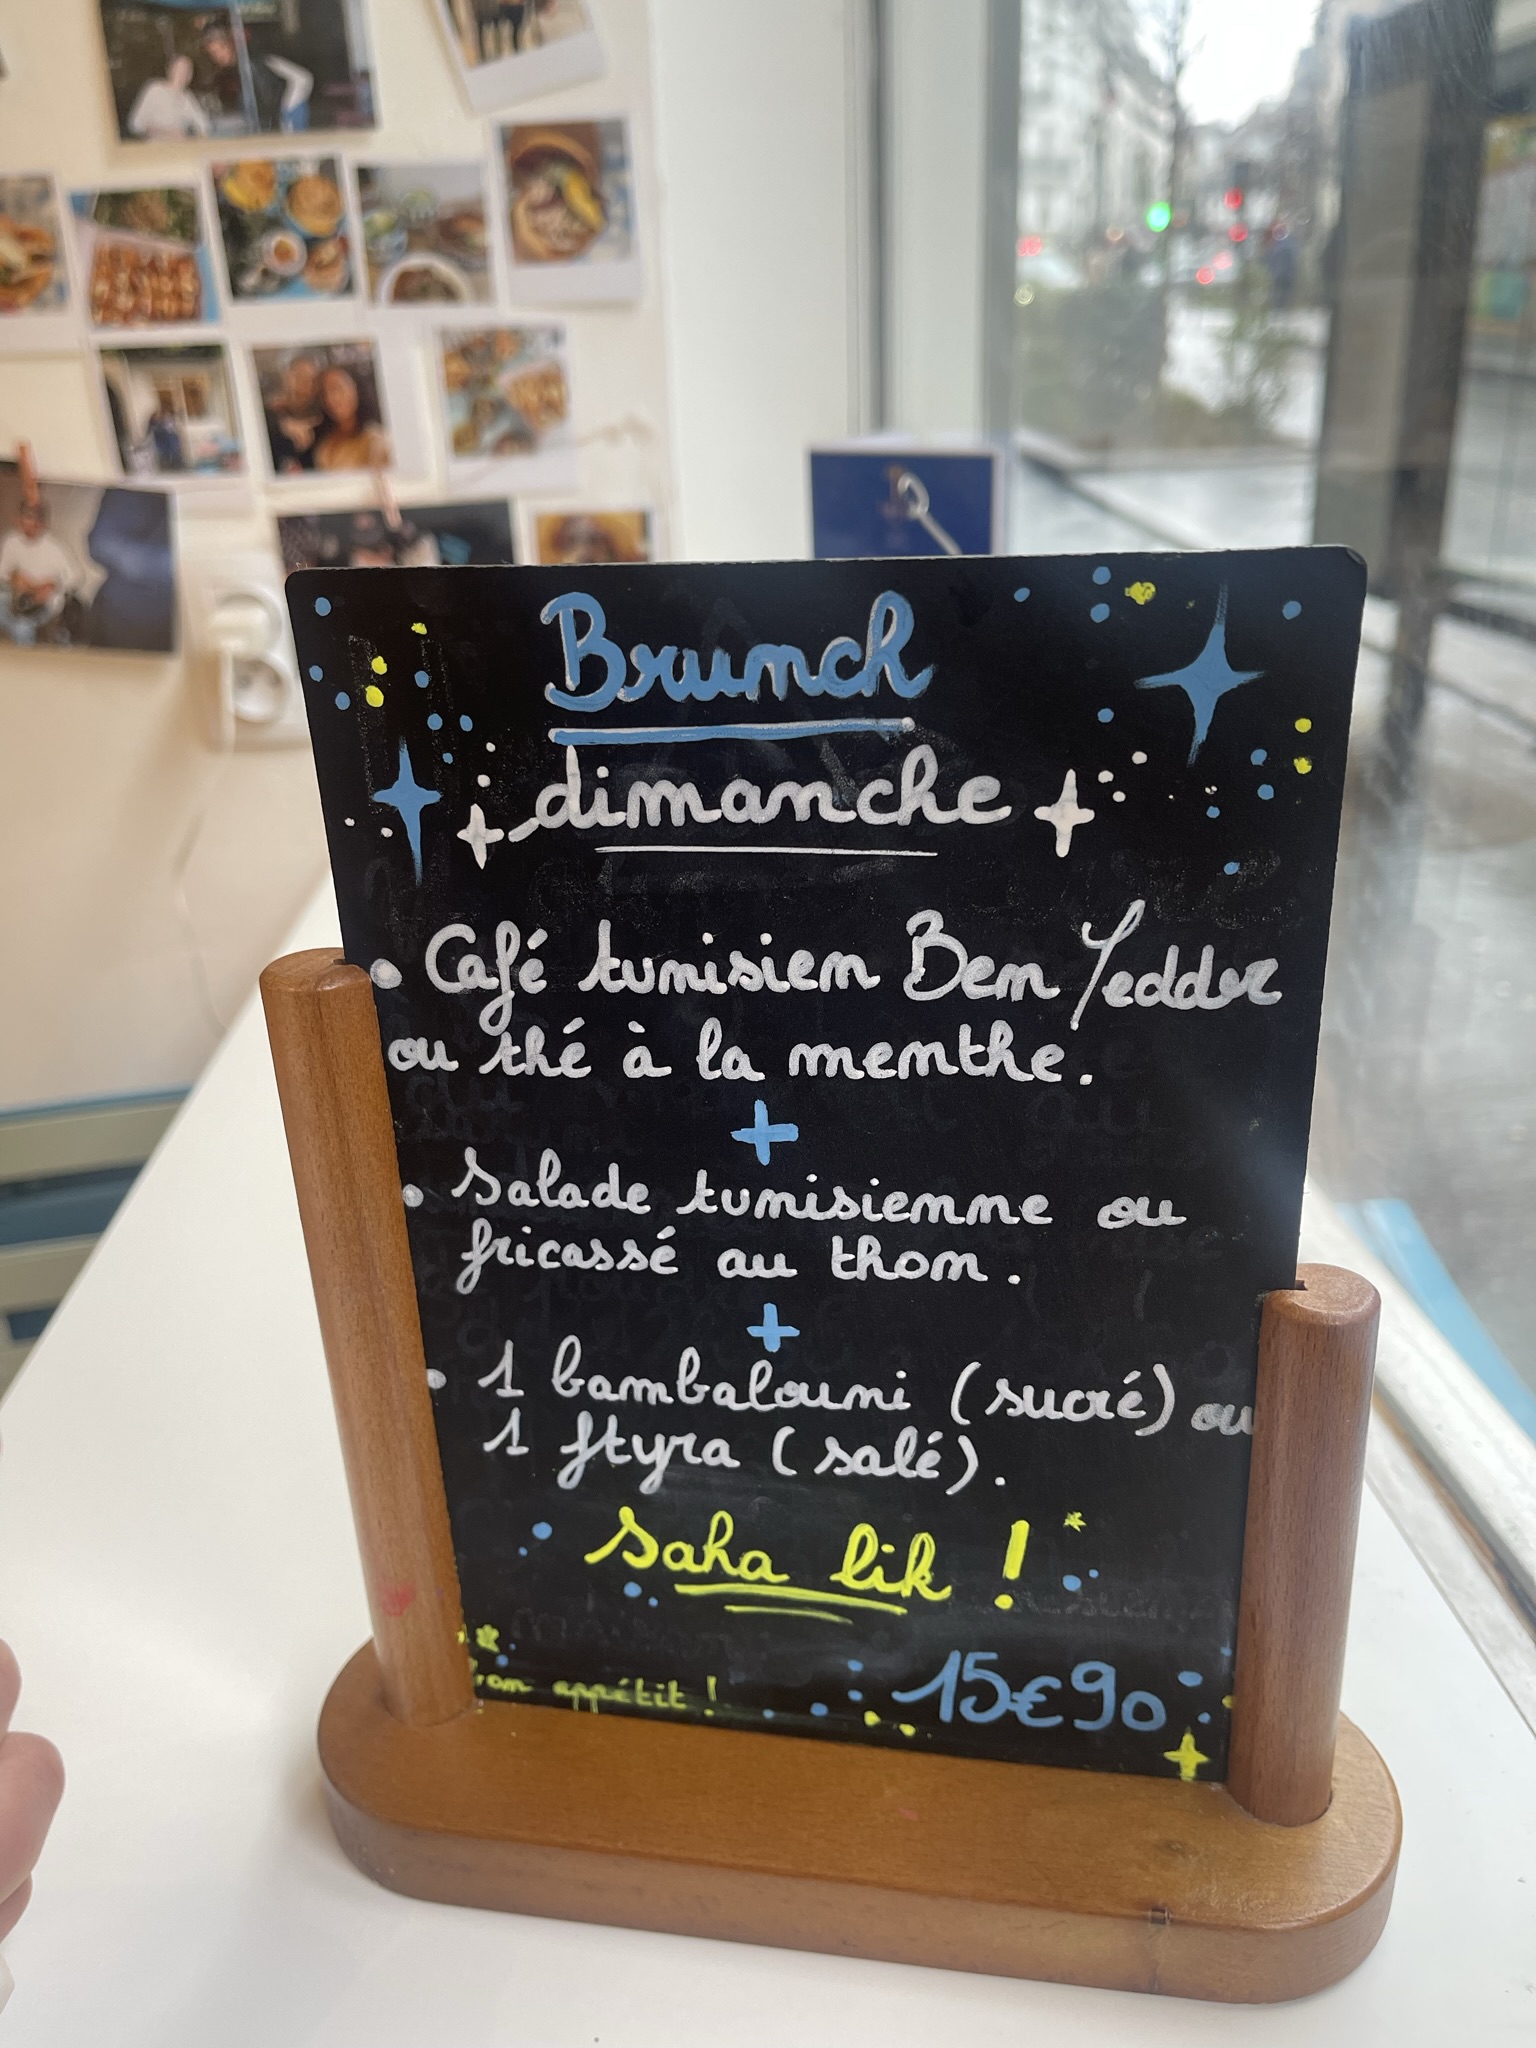 Brunch
dimanche
• Café tunisien Ben Yedder
ou thé à la menthe.
+
• Salade tunisienne ou
fricassé au thon.
+
• 1 bambalouni (sucré) ou
1 ftyra (salé).
Saha lik !
appétit !
15€90